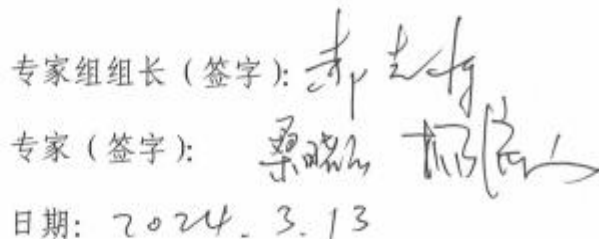 专家组组长（签字）：郝
专家（签字）： 桑晓
日期：2024.3.13